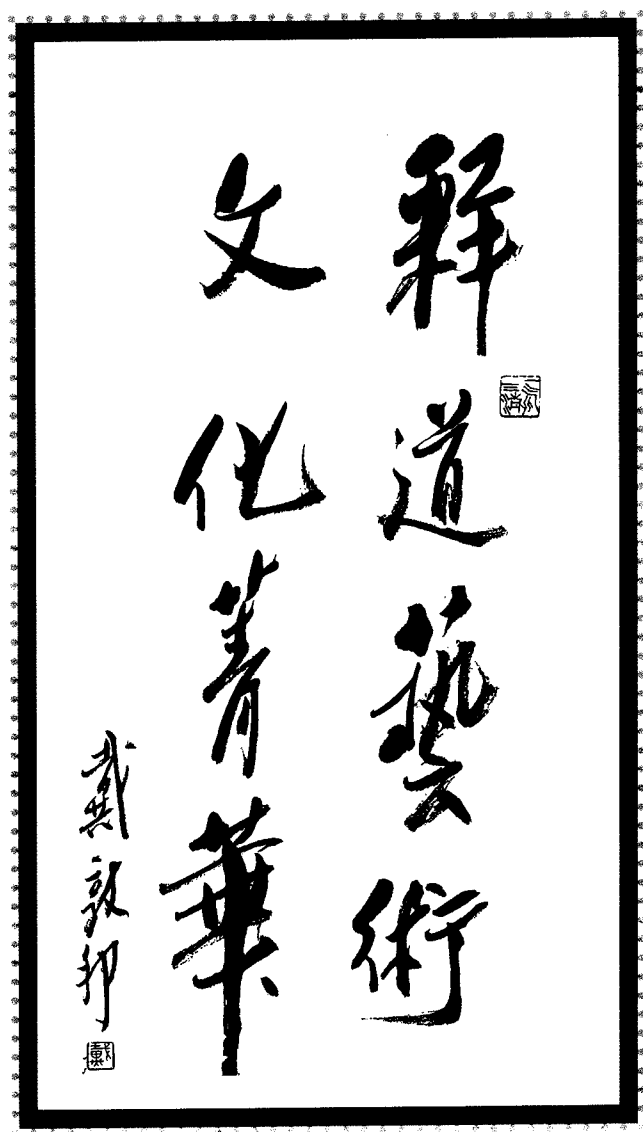 釋道藝術
文化菁華
戴敦邦
戴